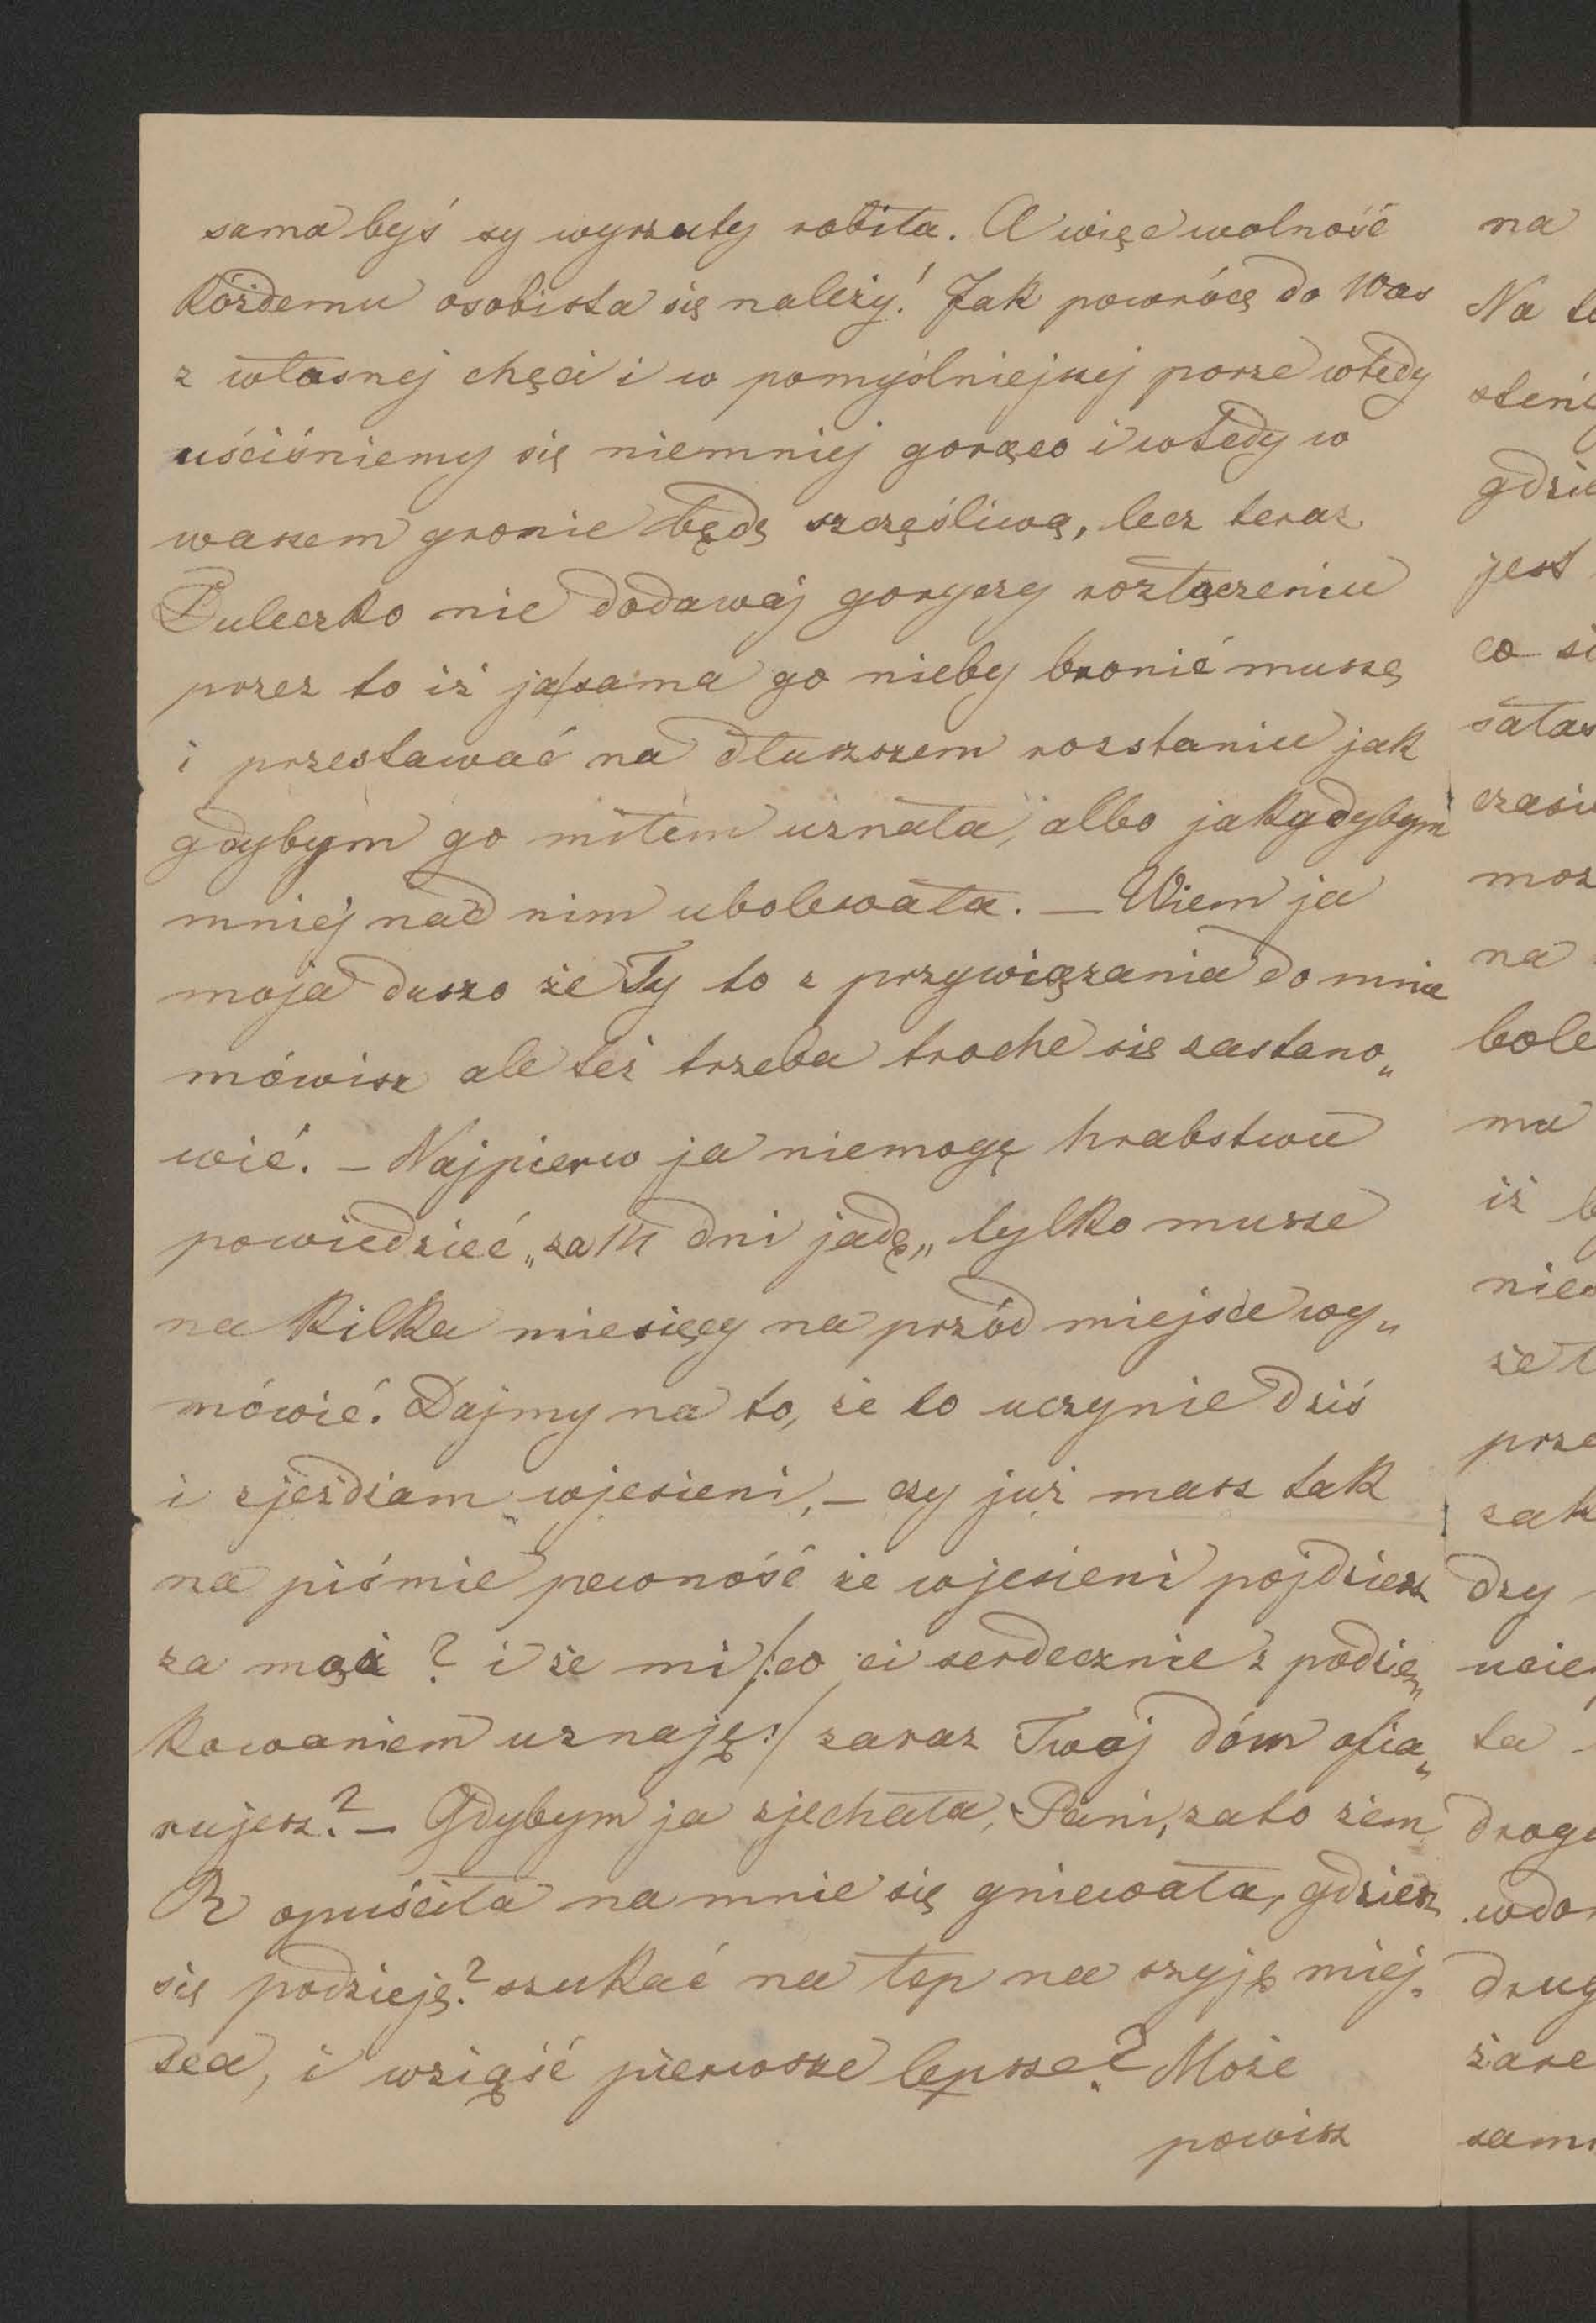 sama byś sy wyrzuty robiła. A więc wolność
każdemu osobista się należy! Jak powrócę do Was
z własnej chęci i w pomyślniejszej porze wtedy
uściśniemy się niemniej gorąco i wtedy w
waszem gronie będę szczęśliwą, lecz teraz
Buleczko nie dodawaj goryczy rozłączeniu
przez to iż ja/sama go nieby bronić muszę
i przestawać na dłuższem rozstaniu jak
gdybym go miłem uznała, albo jakgdybym
mniej nad nim ubolewała. — Wiem ja
moja duszo że Ty to z przywiązania do mnie
mówisz ale też trzeba troche się zastano„
wić. — Najpierw ja niemogę hrabstwu
powiedzieć „za 14 dni jadę„ tylko musze
na kilka miesięcy na przód miejsce wy„
mówić. Dajmy na to, że to uczynie dziś
i zjeżdżam wjesieni, — czy już masz tak
na piśmie pewność że wjesieni pójdziesz
za mąż? i że mi /:co ci serdecznie z podzię„
kowaniem uznaję:/ zaraz Twój dóm ofia„
rujesz? — Gdybym ja zjechała, Pani, zato żem
R opuściła na mnie się gniewała, gdzież
się podzieję? szukać na łep na szyję miej„
sca, i wziąść pierwsze lepsze? Może
powisz
na
Na te
gdzie
jest
co si
czasie
moż
na
bole
ma
iż b
nie
że t
prze
zak
dzy
ucie
ta
droge
wdo
drug
żare
sam